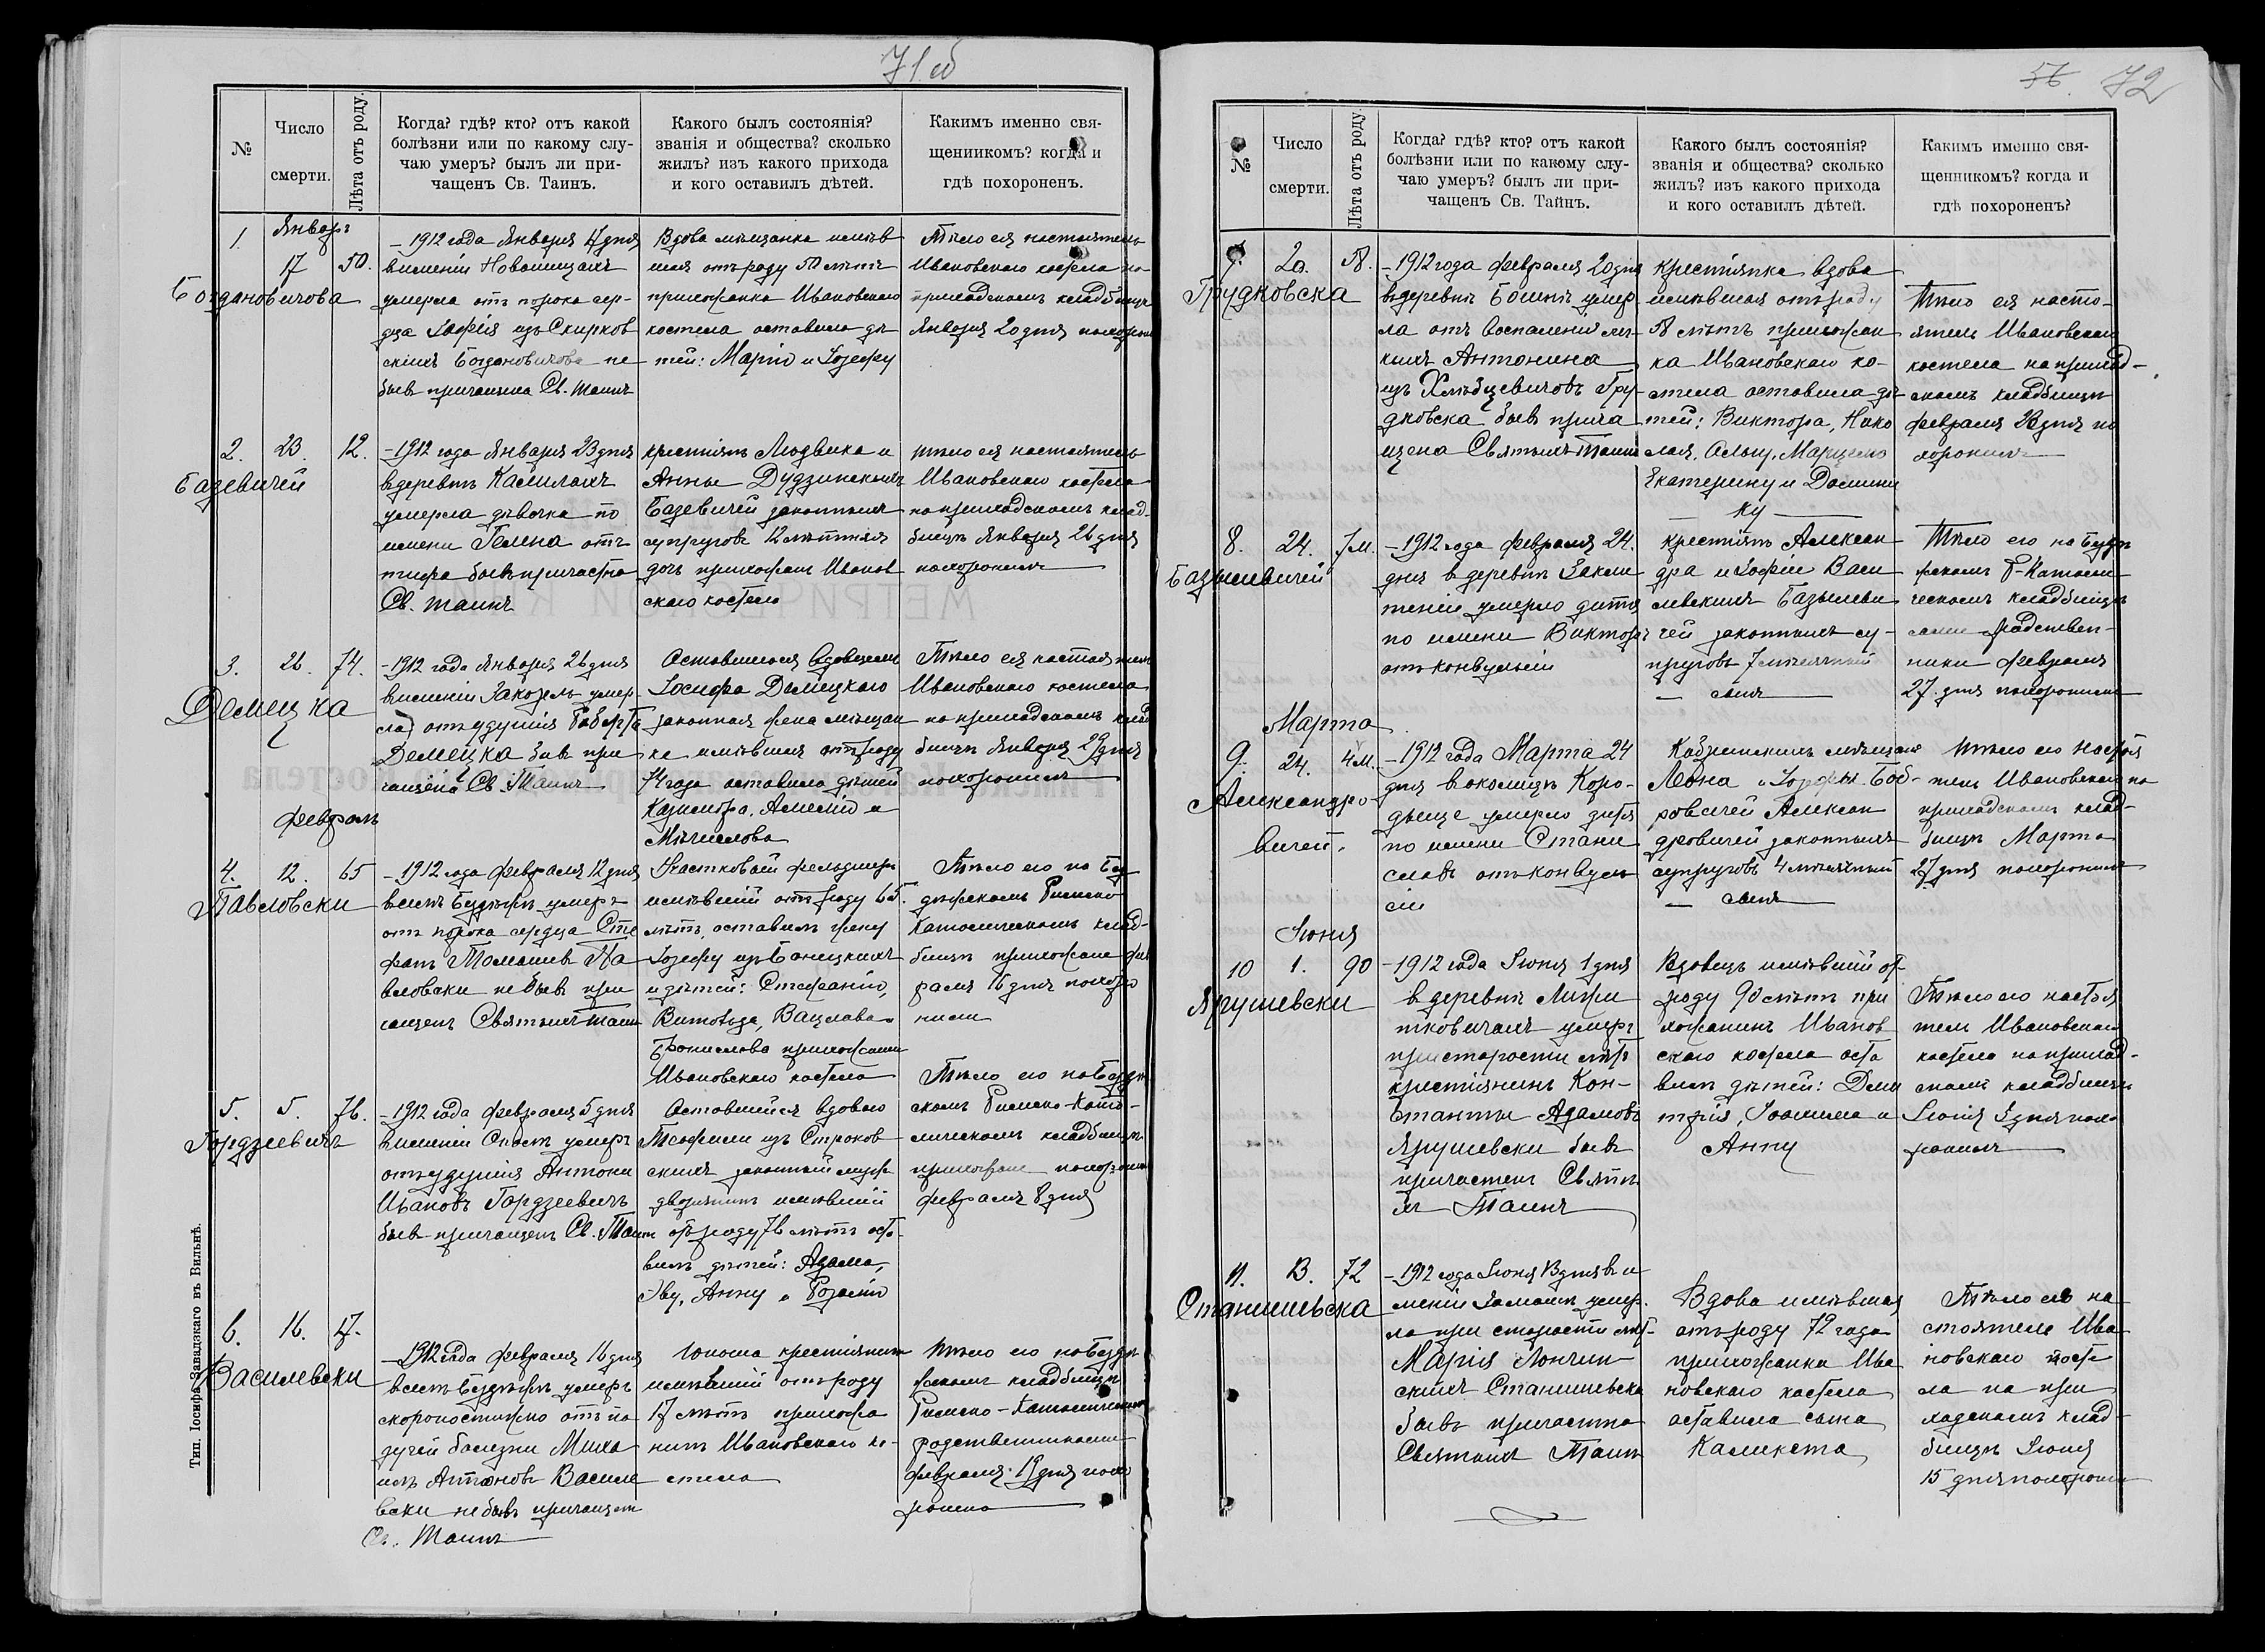 71 об
№
Число
смерти.
Лѣта отъ роду.
Когда? гдѣ? кто? отъ какой
болѣзни или по какому слу-
чаю умеръ? былъ ли при-
чащенъ Св. Таинъ.
Какого былъ состоянія?
званія и общества? сколько
жилъ? изъ какого прихода
и кого оставилъ дѣтей.
Какимъ именно свя-
щенникомъ? когда и
гдѣ похороненъ.
1.
Январь
17
50.
Богдановичова
– 1912 года Января 17 дня
в имении Новошицахъ
умерла отъ порока сер-
дца Зофія изъ Скирков
скихъ Богдановичова не
бывъ причащена Св. Таинъ
Вдова мѣщанка имѣв
шая отъ роду 50 лѣтъ
прихожанка Ивановскаго
костела оставила дѣ
тей: Марію и Іозефу
Тѣло ея настоятель
Ивановскаго костела на
приходскомъ кладбищѣ
Января 20 дня похорон
2.
23.
12.
Базевичей
– 1912 года Января 23 дня
в деревнѣ Камилахъ
умерла дѣвочка по
имени Гелена отъ
тифа бывъ причастна
Св. Таинъ
крестьянъ Людвика и
Анны Дудзинскихъ
Базевичей законныхъ
супруговъ 12 лѣтняя
дочь прихожанъ Иванов
скаго костела
тѣло ея настоятель
Ивановскаго костела
на приходскомъ клад-
бищѣ Января 26 дня
похоронилъ
3.
26.
74.
Демецка
– 1912 года Января 26 дня
в имении Закозель умер
ла отъ удушія
Демецка бывъ при
чащена Св. Таинъ
Оставшагося вдовцемъ
Іосифа Дымецкаго
законная жена мѣщан
ка имѣвшая отъ роду
74 года оставила дѣтей
Казимира, Амелію и
Мѣчислова
Тѣло ея настоятель
Ивановскаго костела
на приходскомъ клад
бищѣ Января 29 дня
похоронилъ
февраль
4.
12.
65
Павловски
– 1912 года февраля 12 дня
в селѣ умеръ
отъ порока сердца Сте
фанъ Томашев Па
вловски не бывъ при
чащенъ Святыхъ Таинъ
Участковый фельдшеръ
имѣвшій отъ роду 65.
лѣтъ, оставилъ жену
Іозефу изъ Банецкихъ
и дѣтей: Стефанію,
Витольда, Вацлава
Бронислава прихожанинъ
Ивановскаго костела
Тѣло его на Буд
Римско
Католическомъ клад-
бищѣ прихожане фев
раля 16 дня похоро
нили
5.
5.
76.
Гордзеевичъ
– 1912 года февраля 5 дня
в имении умеръ
отъ удушія Антони
Ивановъ Гордзеевичъ
бывъ причащенъ Св. Таинъ
Оставшійся вдовою
Теофили изъ Строков
скихъ законный мужъ
дворянинъ имѣвшій
отъ роду 76 лѣтъ оста
вилъ дѣтей: Адама,
Эву, Анну и Розалію
Тѣло его на
скомъ Римско-Като-
лическомъ кладбищѣ
прихожане похоронили
февраля 8 дня
6.
16.
17.
Василевски
– 1912 года февраля 16 дня
в селѣ умеръ
скоропостижно отъ па
дучей болезни Миха
илъ Антоновъ Василе
вски не бывъ причащен
Св. Таинъ
Юноша крестьянинъ
имѣвшій отъ роду
17 лѣтъ прихожа
нинъ Ивановскаго ко-
стела
тѣло его на
кладбищѣ
Римско-Католическомъ
родственниками
февраля 19 дня похо
ронено
Тип. Іосифа Завадзкаго въ Вильнѣ.
56. 72
№
Число
смерти.
Лѣта отъ роду.
Когда? гдѣ? кто? отъ какой
болѣзни или по какому слу-
чаю умеръ? былъ ли при-
чащенъ Св. Тайнъ.
Какого былъ состоянія?
званія и общества? сколько
жилъ? изъ какого прихода
и кого оставилъ дѣтей.
Какимъ именно свя-
щенникомъ? когда и
гдѣ похороненъ?
7.
20.
58.
Грудковска
– 1912 года февраля 20 дня
в деревнѣ умер
ла отъ воспаленія лег
кихъ Антонина
изъ Хмѣлцевичовъ Гру
дковска бывъ прича
щена Святыхъ Таинъ
Крестьянка вдова
имѣвшая отъ роду
58 лѣтъ прихожан
ка Ивановскаго ко-
стела оставила дѣ
тей: Виктора, Нико
лая, Ольгу,
Екатерину и Домини
ку
Тѣло ея насто-
ятель Ивановскаго
костела на приход-
скомъ кладбищѣ
февраля 23 дня по
хоронилъ
8.
24.
7 м.
Базылевичей
– 1912 года февраля 24.
дня в деревнѣ
умерло дитя
по имени Викторъ
отъ конвульсій
крестьянъ Алексан
дра и Зофіи Васи
левскихъ Базылеви
чей законныхъ су-
пруговъ 7 мѣсячный
– сынъ
Тѣло его на
Р-Католи
ческомъ кладбищѣ
сами родствен-
ники февраля
27 дня похоронили
Марта
9.
24.
4 м.
Александро-
вичей.
– 1912 года Марта 24
дня в околицѣ Коро-
дыще умерло дитя
по имени Стани
славъ отъ конвуль
сій
Кобринскихъ мѣщанъ
Леона и Іозефы Боб-
ровичей Алексан
дровичей законныхъ
супруговъ 4 мѣсячный
– сынъ
тѣло его настоя
тель Ивановскаго на
приходскомъ клад-
бищѣ Марта
27 дня похоронилъ
Іюня
10
1.
90
Ярушевски
– 1912 года Іюня 1 дня
в деревнѣ Ляхо
тковичахъ умеръ
при старости лѣтъ
крестьянинъ Кон-
стантъ Адамовъ
Ярушевски бывъ
причастенъ Святы
хъ Таинъ
Вдовецъ имѣвшій от
роду 90 лѣтъ при
хожанинъ Иванов
скаго костела оста
вилъ дѣтей: Дми
трія, Іоахима и
Анну
Тѣло его настоя
тель Ивановскаго
костела на приход-
скомъ кладбищѣ
Іюня 3 дня похо
ронилъ
11.
13.
72
Станишевска
– 1912 года Іюня 13 дня в и
мении умер.
ла при старости лѣт-
Марія Лончин
скихъ Станишевска
бывъ причастна
Святыхъ Таинъ
Вдова имѣвшая
отъ роду 72 года
прихожанка Ива
новскаго костела
оставила сына
Каликста
Тѣло ея на
стоятель Ива
новскаго косте
ла на при
ходскомъ клад-
бищѣ Іюня
15 дня похоронилъ